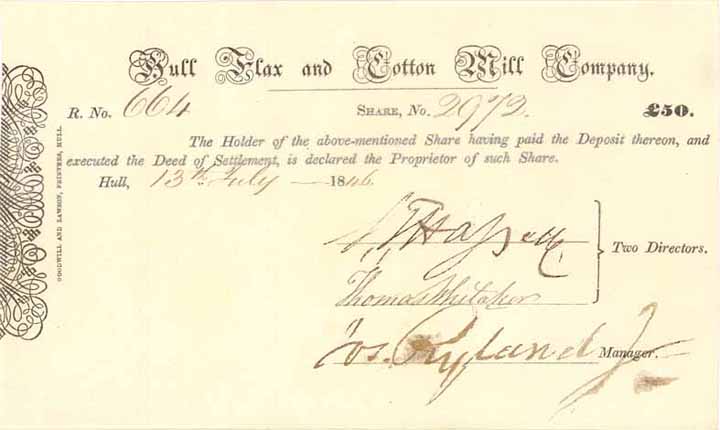 Hull Flax and Cotton Mill Company.
R. No. 664 Share, No. 2972. £50.
The Holder of the above-mentioned Share having paid the Deposit thereon, and
executed the Deed of Settlement, is declared the Proprietor of such Share.
Hull, 13th July 1846
Two Directors.
Thomas Whitaker
Jos. Ryland Jr Manager.
GOODWILL AND LAWSON, PRINTERS, HULL.